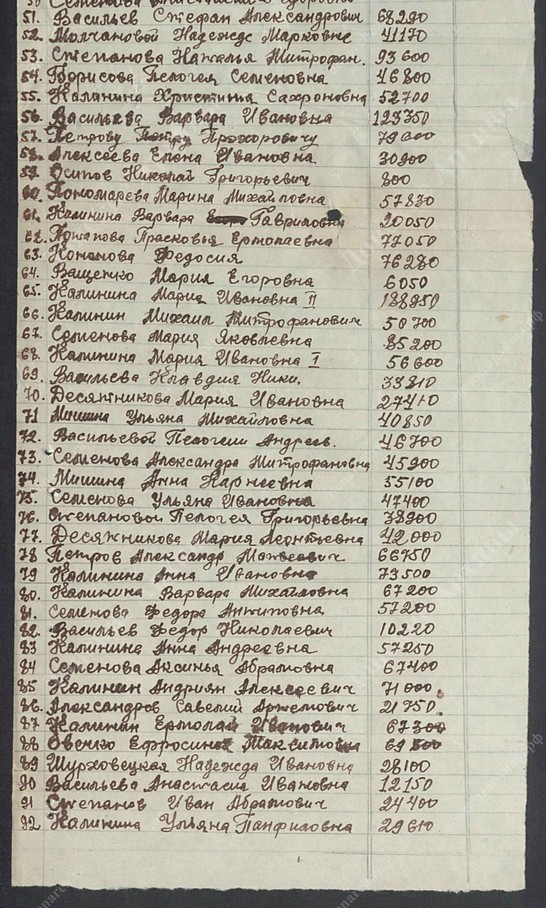 51. Васильев Стефан Александрович 68290
52. Молчановой Надежде Марковне 41170
53. Степанова Наталья Митрофан. 93600
54. Борисова Пелогея Семеновна 46800
55. Калинина Христинья Сахроновна 52700
56. Васильева Варвара Ивановна 123750
57. Петрову Петру Прохоровичу
58. Алексеева Елена Ивановна 30900
59. Осипов Николай Григорьевич 800
60. Пономарева Марина Михайловна 57830
61. Калинина Варвара Гавриловна 20050
62. Потапова Прасковья Ермолаевна 77050
63. Кополова Федосия 76280
64. Ващенко Мария Егоровна 6050
65. Калинина Мария Ивановна II 188950
66. Калинин Михаил Митрофанович 50700
67. Семенова Мария Яковлевна 85200
68. Калинина Мария Ивановна I 56600
69. Васильева Клавдия Ники. 33810
70. Десяжникова Мария Ивановна 27410
71 Мишина Ульяна Михайловна 40850
72. Васильевой Пелогеии Андреев. 46700
73. Семенова Александра Митрофановна 45900
74. Мишина Анна Карнеевна 55100
75. Семенова Ульяна Ивановна 47400
76. Степановой Пелогея Григорьевна 38900
77. Десяжникова Мария Леонтьевна 42000
78 Петров Александр Матвеевич 66750
79 Калинина Анна Ивановна 73500
80. Калинина Варвара Михайловна 67200
81. Семенова Федора Антиповна 57200
82. Васильев Федор Николаевич 10220
83 Калинина Анна Андреевна 57250
84 Семенова Аксинья Абрамовна 67400
85 Калинин Андриян Алексеевич 71000
86. Александров Савелий Артемович 21750
87 Калинин Ермолай Иванович 67300
88 Овечко Ефросинья Максимовна
89 Шурховецкая Надежда Ивановна 28100
90 Васильева Анастасия Ивановна 12150
91 Степанов Иван Абрамович 24400
92 Калинина Ульяна Панфиловна 29610